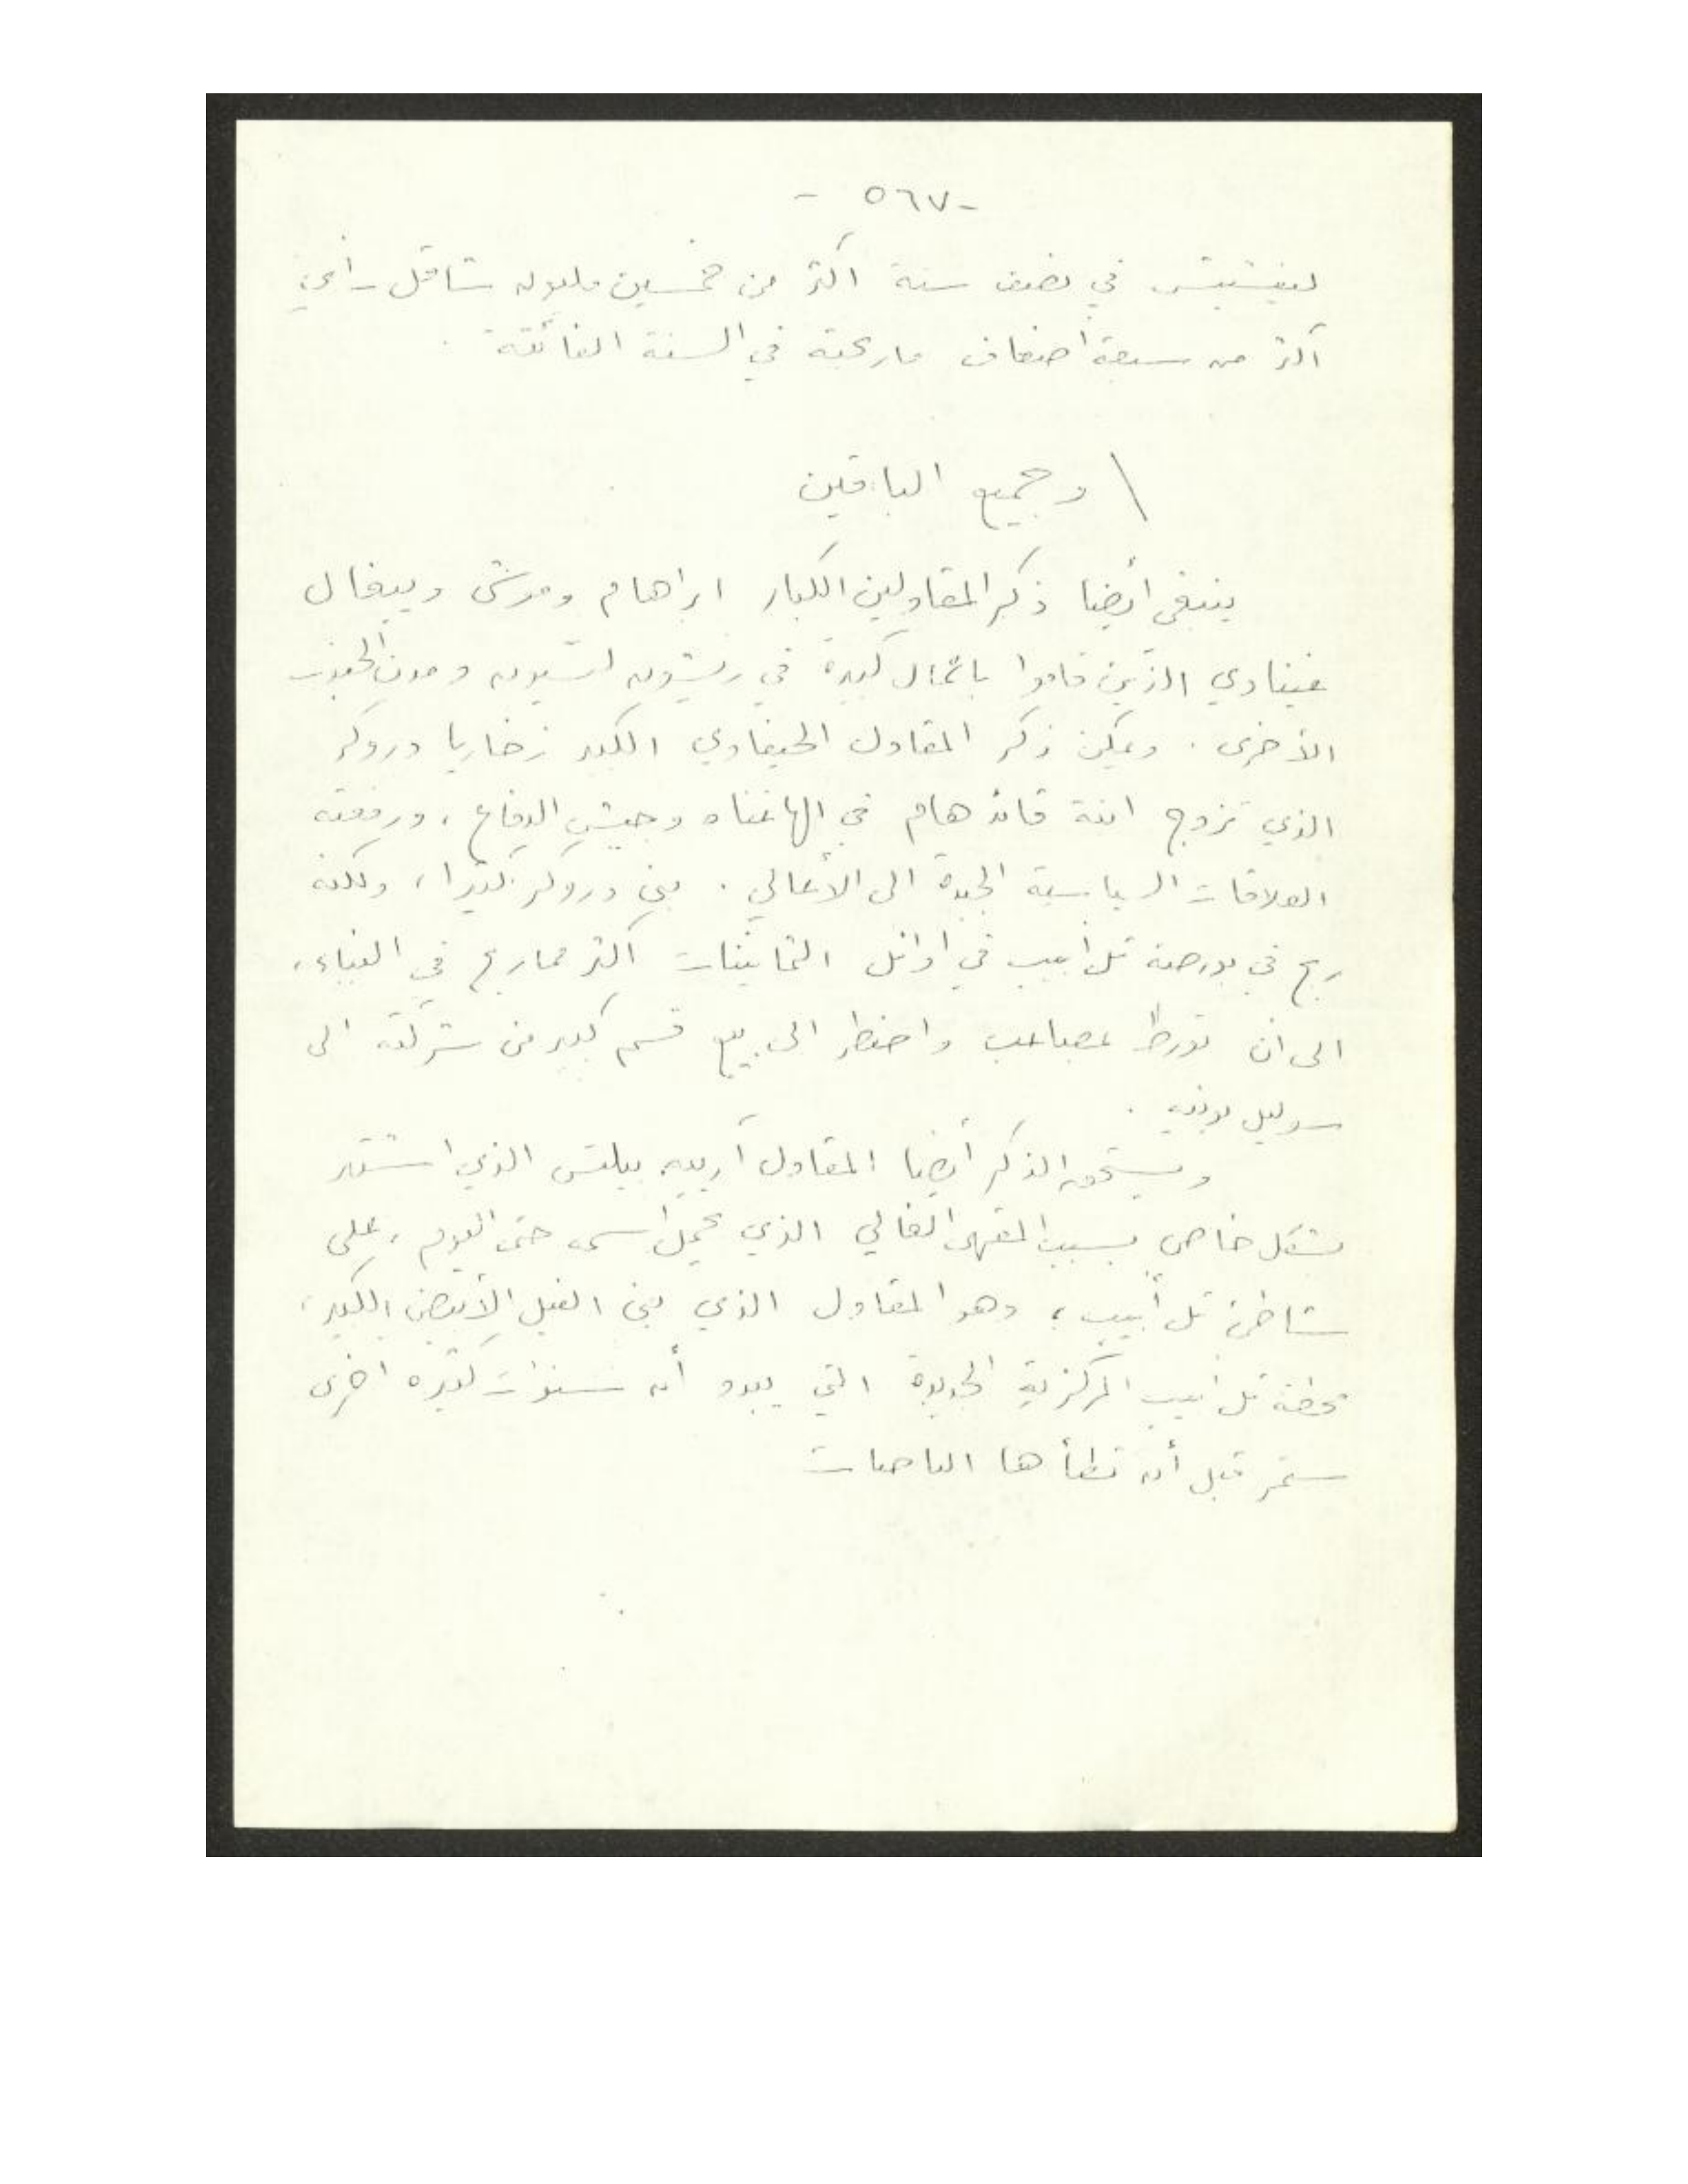 - ٥٦٧ -
ليفشيتس في نصف سنة اكثر من خمسين مليون شاقل - أي
أكثر من سبعة أضعاف ما ربحته في السنة الفائتة .
\ وجميع الباقين
ينبغي أيضا ذكر المقاولين الكبار ابراهام وموشى ويغال
غينادي الذين قاموا باعمال كبيرة في ريشون لتسيون ومدن الجنوب
الأخرى . ويمكن ذكر المقاول الحيفاوي الكبير زخاريا دروكر
الذي تزوج ابنة قائد هام في الهاغناه وجيش الدفاع ، ورفعته
العلاقات السياسية الجيدة الى الأعالي . بنى دروكر كثيرا ، ولكنه
ربح في بورصة تل أبيب في اوائل الثمانينات اكثر مما ربح في البناء ،
الى ان تورط بمصاعب واضطر الى بيع قسم كبير من شركته الى
سوليل بونيه .
ويستحق الذكر أيضا المقاول أرييه بيلتس الذي اشتهر
بشكل خاص بسبب المقهى الغالي الذي يحمل اسمه حتى اليوم ، على
شاطئ تل أبيب ، وهو المقاول الذي بنى الفيل الأبيض الكبير ،
محطة تل ابيب المركزية الجديدة التي يبدو أن سنوات كثيرة اخرى
ستمر قبل أن تطأها الباصات